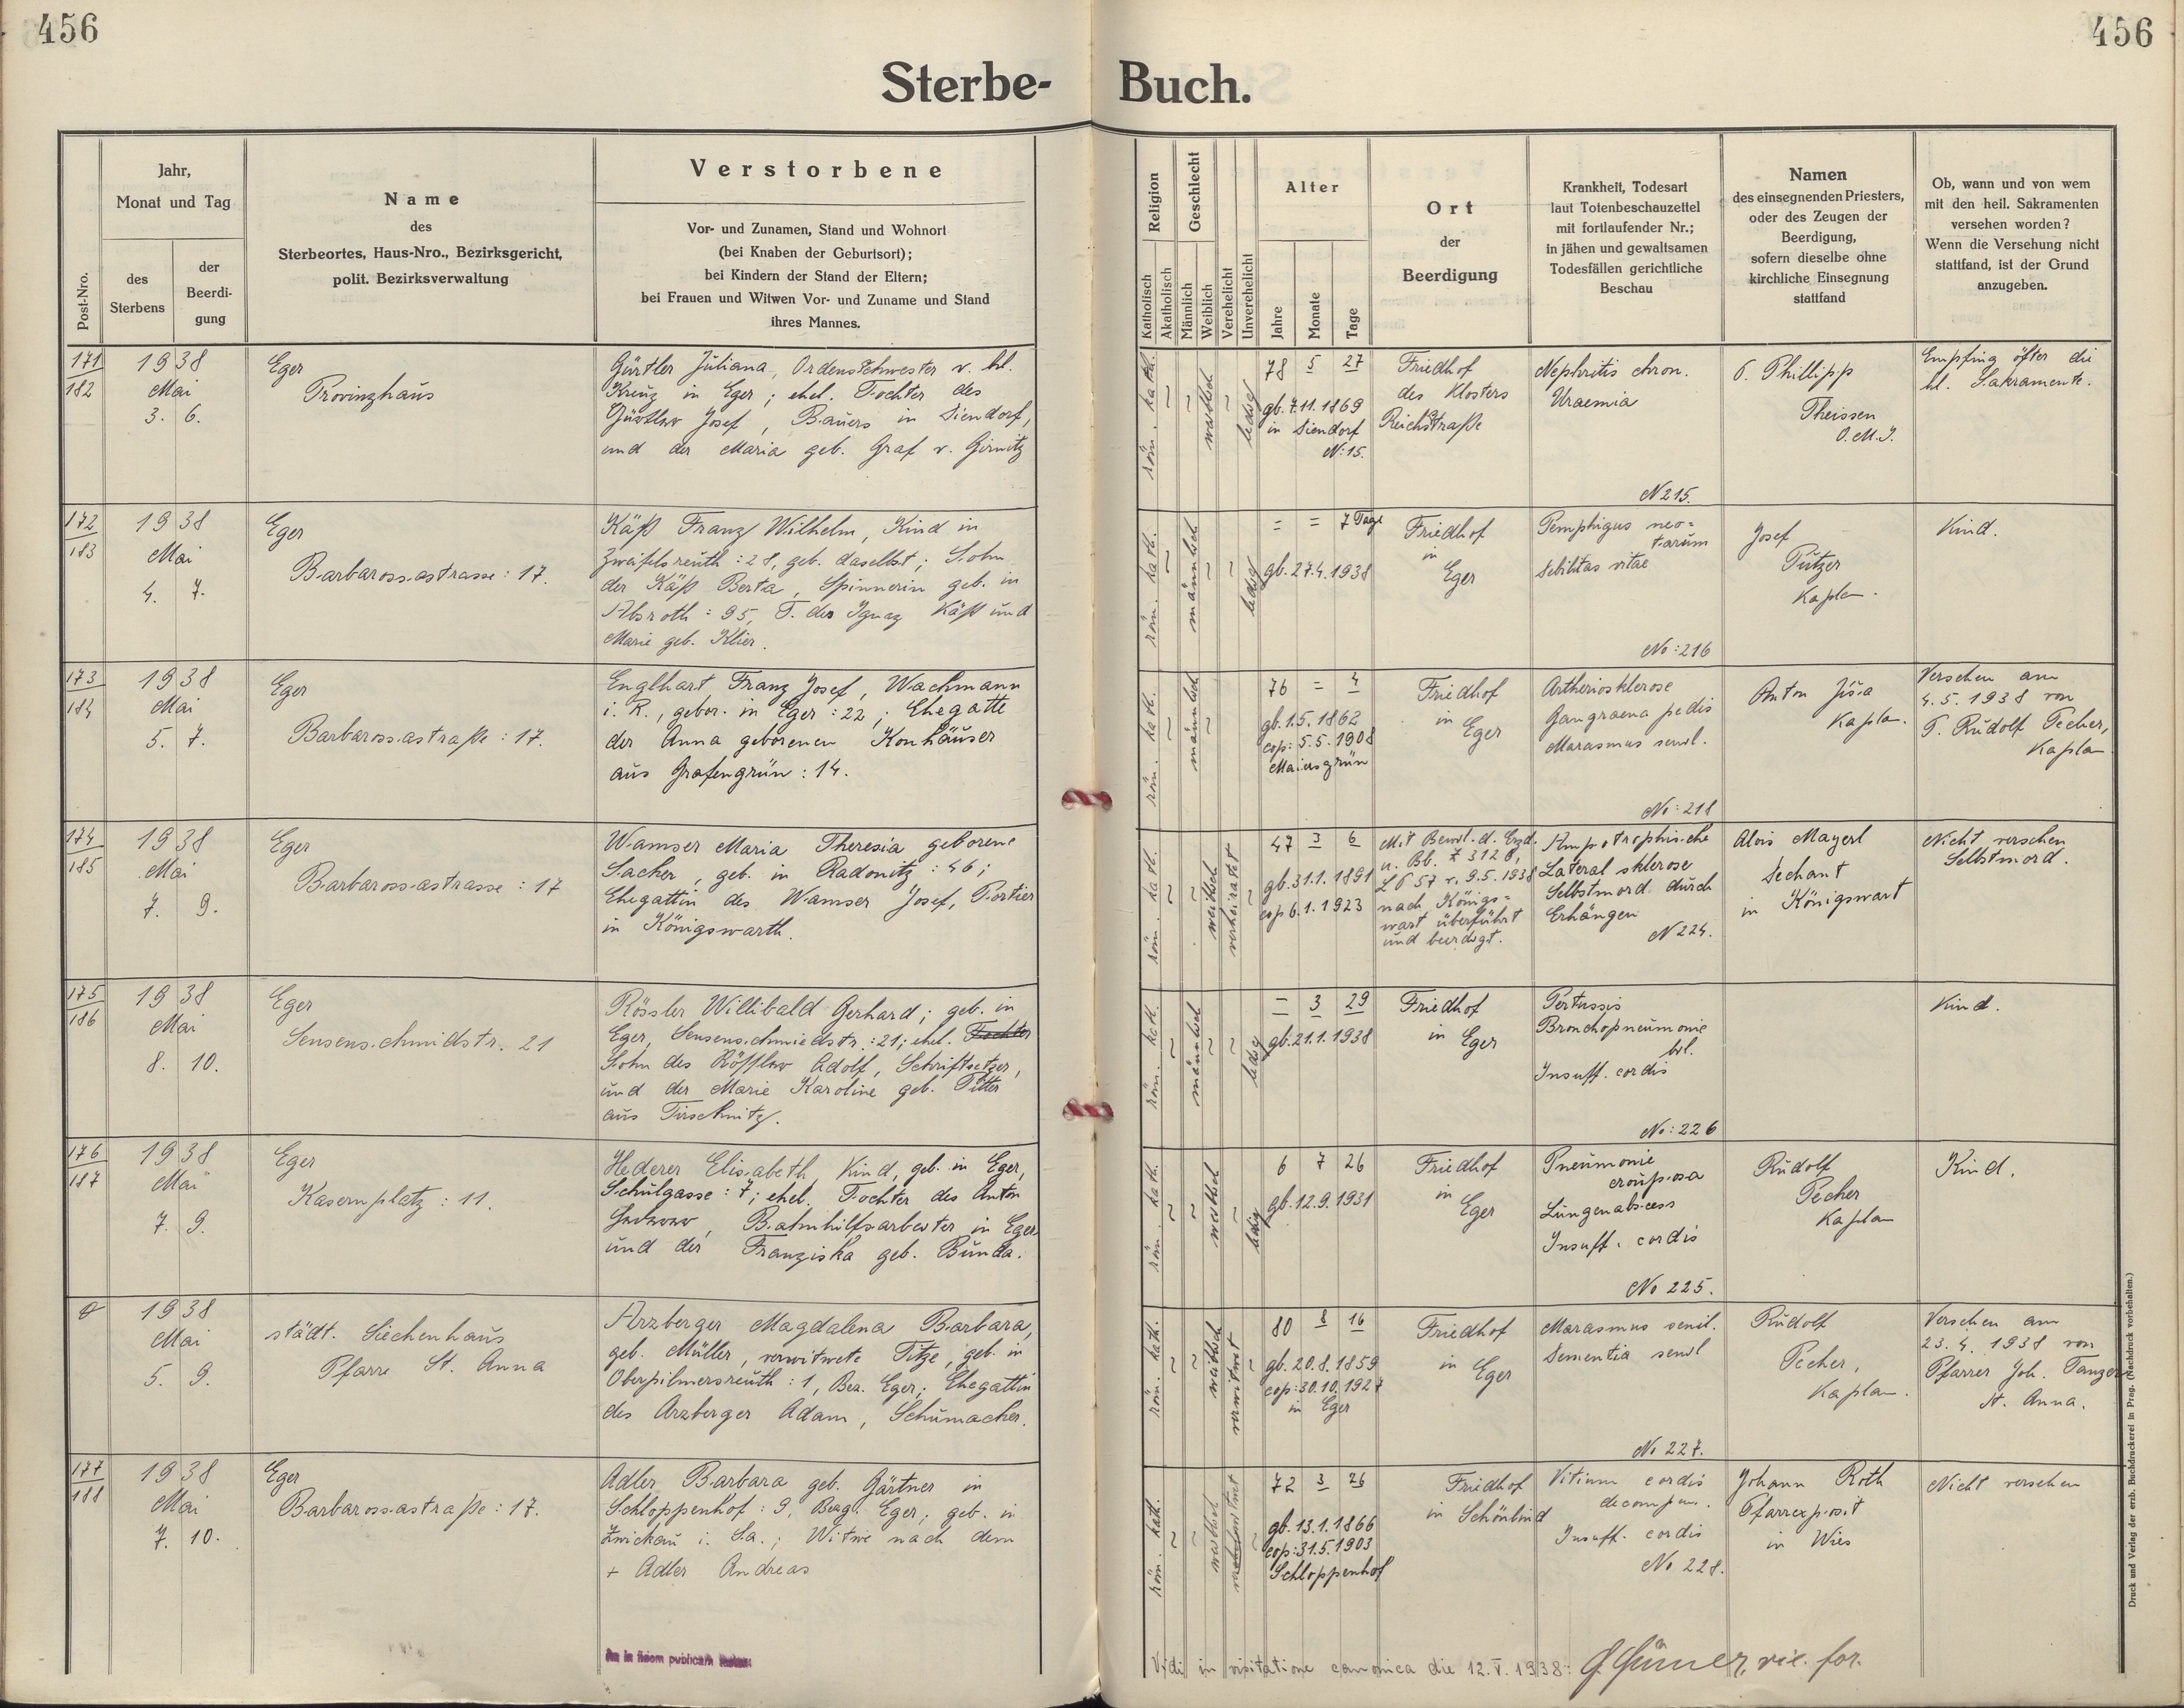 456
456
Sterbe- Buch.
Post-Nro.
Jahr,
Monat und Tag
des
Sterbens
der
Beerdi-
gung
Name
des
Sterbeortes, Haus-Nro., Bezirksgericht,
polit. Bezirksverwaltung
Verstorbene
Vor- und Zunamen, Stand und Wohnort
(bei Knaben der Geburtsort);
bei Kindern der Stand der Eltern;
bei Frauen und Witwen Vor- und Zuname und Stand
ihres Mannes.
Religion
Katholisch
Akatholisch
Geschlecht
Männlich
Weiblich
Verehelicht
Unverehelicht
Alter
Jahre
Monate
Tage
Ort
der
Beerdigung
Krankheit, Todesart
laut Totenbeschauzettel
mit fortlaufender Nr.;
in jähen und gewaltsamen
Todesfällen gerichtliche
Beschau
Namen
des einsegnenden Priesters,
oder des Zeugen der
Beerdigung,
sofern dieselbe ohne
kirchliche Einsegnung
stattfand
Ob, wann und von wem
mit den heil. Sakramenten
versehen worden?
Wenn die Versehung nicht
stattfand, ist der Grund
anzugeben.
171
182
1938
Mai
3. 6.
Eger
Provinzhaus
Gürtler Juliana, Ordensschwester v. hl.
Kreuz in Eger; ehel. Tochter des
Gürtler Josef, Bauers in Diendorf,
und der Maria geb. Graf v. Girnitz
röm. kath.
~
~
weiblich
~
ledig
78 5 27
gb. 7.11.1869
in Diendorf
N: 15.
Friedhof
des Klosters
Reichstraße
Nephritis chron.
Uraemia
N 215.
P. Phillipp
Theissen
O.M.I.
Empfing öfter die
hl. Sakramente.
172
183
1938
Mai
4. 7.
Eger
Barbarossastrasse: 17.
Käß Franz Wilhelm, Kind in
Zweifelsreuth: 28, geb. daselbst; Sohn
der Käß Berta, Spinnerin geb. in
Absroth: 95, T. des Ignaz Käß und
Marie geb. Klier.
röm. kath.
~
männlich
~
~
ledig
= = 7 Tage
gb. 27.4.1938
Friedhof
in
Eger
Pemphigus neo=
tarum
Debilitas vitae
No: 216
Josef
Putzer
Kaplan.
Kind.
173
184
1938
Mai
5. 7.
Eger
Barbarossastraße: 17.
Englhart Franz Josef, Wachmann
i. R., gebor. in Eger: 22; Ehegatte
der Anna geborenen Konhäuser
aus Grafengrün: 14.
röm. kath.
~
männlich
~
76 = 4
gb. 1.5.1862
cop: 5.5.1908
Maiersgrün
Friedhof
in
Eger
Artheriosklerose
Gangraena pedis
Marasmus senil.
No: 218
Anton Jůsa
Kaplan.
Versehen am
4.5.1938 von
P. Rudolf Pecher,
Kaplan
174
185
1938
Mai
7. 9.
Eger
Barbarossastrasse: 17
Wamser Maria Theresia geborene
Sacher, geb. in Radonitz: 46;
Ehegattin des Wamser Josef, Portier
in Königswarth.
röm. kath.
~
~
weiblich
verheiratet
~
47 3 6
gb. 31.1.1891
cop 6.1.1923
Mit Bewil. d.
9.5.1938
nach Königs=
wart überführt
und beerdigt.
Amyotrophische
Lateralsklerose
Selbstmord durch
Erhängen
N 224.
Alois Mayerl
Dechant
in Königswart
Nicht versehen
Selbstmord.
175
186
1938
Mai
8. 10.
Eger
Sensenschmidstr. 21
Rössler Willibald Gerhard; geb. in
Eger, Sensenschmiedstr.: 21; ehel. Tochter
Sohn des Rössler Adolf, Schriftsetzer,
und der Marie Karoline geb. Pitter
aus Tirschnitz.
röm. kath.
~
männlich
~
~
ledig
= 3 29
gb. 21.1.1938
Friedhof
in Eger
Pertussis
Bronchopneumonie
bil.
Insuff. cordis
No: 226
Kind.
176
187
1938
Mai
7. 9.
Eger
Kasernplatz: 11.
Hederer Elisabeth, Kind, geb. in Eger,
Schulgasse: 7; ehel. Tochter des Anton
Hederer, Bahnhilfsarbeiter in Eger
und der Franziska geb. Bunda.
röm. kath.
~
~
weiblich
~
ledig
6 7 26
gb. 12.9.1931
Friedhof
in
Eger
Pneumonie
crouposa
Lungenabscess
Insuff. cordis
No 225.
Rudolf
Pecher
Kaplan
Kind.
1938
Mai
5. 9.
städt. Siechenhaus
Pfarre St. Anna
Arzberger Magdalena Barbara,
geb. Müller, verwitwete Titze, geb. in
Oberpilmersreuth: 1, Bez. Eger; Ehegattin
des Arzberger Adam, Schumacher.
röm. kath.
~
~
weiblich
verwitwet
~
80 8 16
gb. 20.8.1859
cop: 30.10.1927
in Eger
Friedhof
in Eger
Marasmus senil.
Dementia senil
No 227.
Rudolf
Pecher,
Kaplan.
Versehen am
23.4.1938 von
Pfarrer Joh. Tanzer
St. Anna.
177
188
1938
Mai
7. 10.
Eger
Barbarossastraße: 17.
Adler Barbara geb. Gärtner in
Schloppenhof: 9, Bezg. Eger, geb. in
Zwickau i. Sa.; Witwe nach dem
+ Adler Andreas
röm. kath.
~
~
weiblich
~
72 3 26
gb. 13.1.1866
cop: 31.5.1903
Schloppenhof
Friedhof
in Schönlind
Vitium cordis
decompen.
Insuff. cordis
No 228.
Johann Roth
Pfarrexposit
in Wies
Nicht versehen
Vidi in visitatione canonica die 12.V.1938: vic. for.
Druck und Verlag der erzb. Buchdruckerei in Prag. (Nachdruck vorbehalten.)